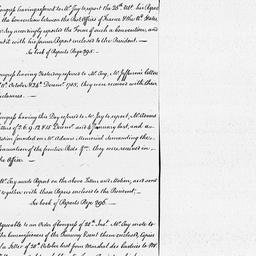 Congress having referred to Mr. Jay to report the 28th Ult. his Agree
the convention between the Post Offices of France & the Ud. States
Jay accordingly reported the Form of such a convention, and
sent it with his former Report enclosed to the President.—
See book of Reports Page 295.—
Congress having Yesterday referred to Mr. Jay, Mr. Jefferson's letters
of October & 24th Decemr. 1785, they were received with their
enclosures.—
Congress having this Day referred to Mr. Jay to report, Mr. Adams
letters of 2. 6. 9. 12 & 15 Decemr. and 4 January last, and a
founded on Mr. Adams Memorial demanding the
evacuation of the frontier Posts &c. they were received in
the Office.—
Mr. Jay made Report on the above Letter and Motion, and sent
together with those Papers enclosed to the President.—
See book of Reports Page 296.—
Agreeable to an Order of Congress of 28th Inst. Mr. Jay wrote to
the Commissioners of the Treasury Board & them enclosed Copies
of a Letter of 28th October last from